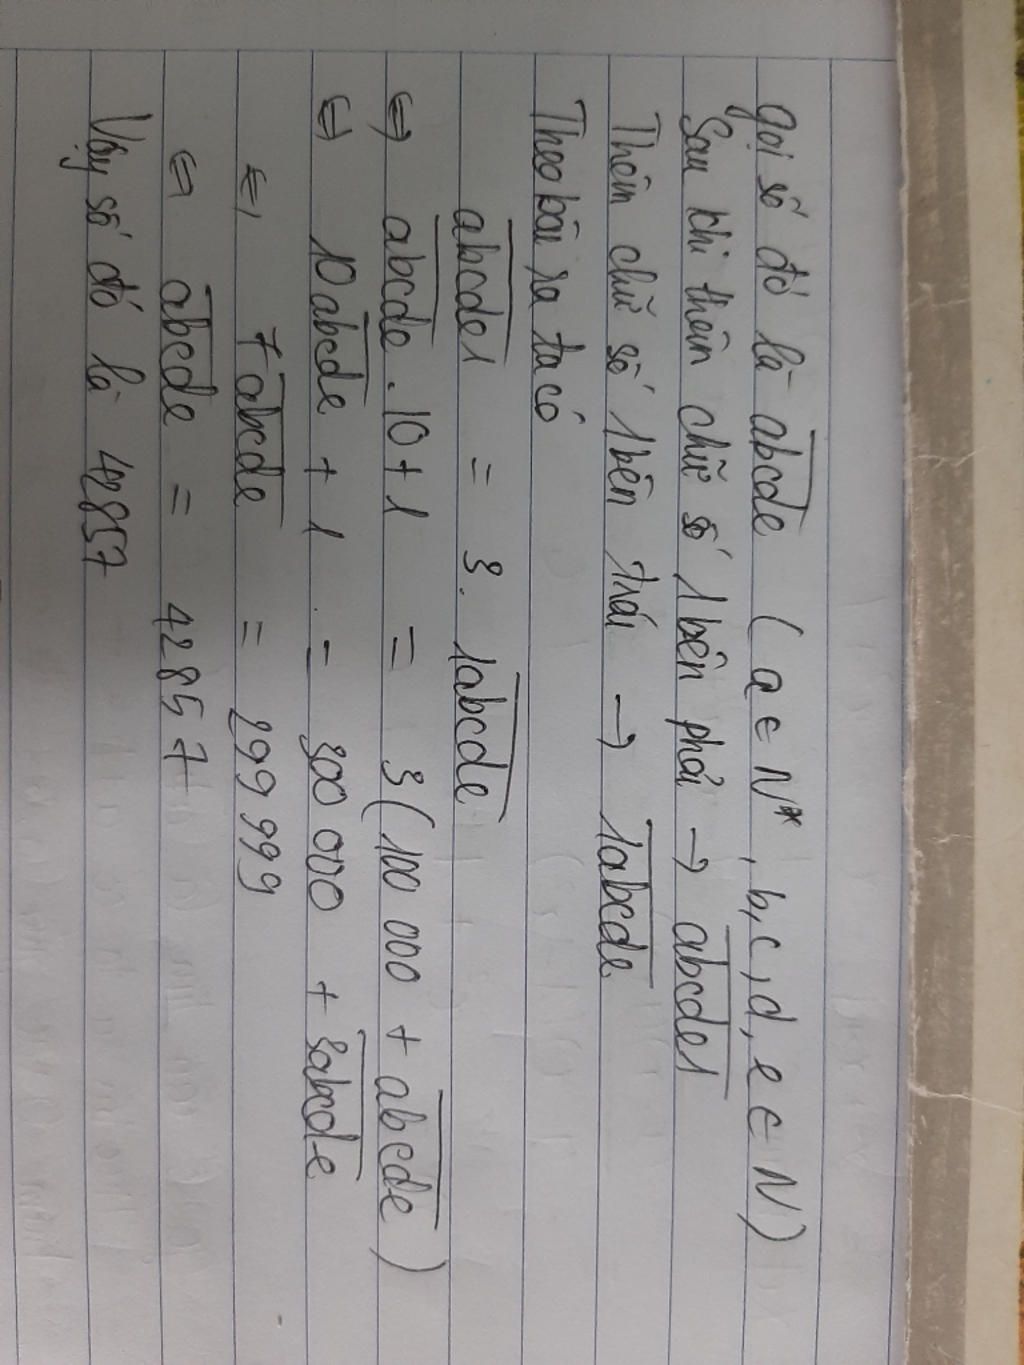 Gọi số đó là abcde ( a ∈ N*, b, c, d, e ∈ N )
Sau khi thêm chữ số 1 bên phải → abcde1
Thêm chữ số 1 bên trái → 1abcde
Theo bài ra ta có
abcde1 = 3. 1abcde
⇔ abcde . 10 + 1 = 3 ( 100 000 + abcde )
⇔ 10abcde + 1 = 300 000 + 3abcde
⇔ 7abcde = 299 999
⇔ abcde = 42857
Vậy số đó là 42857